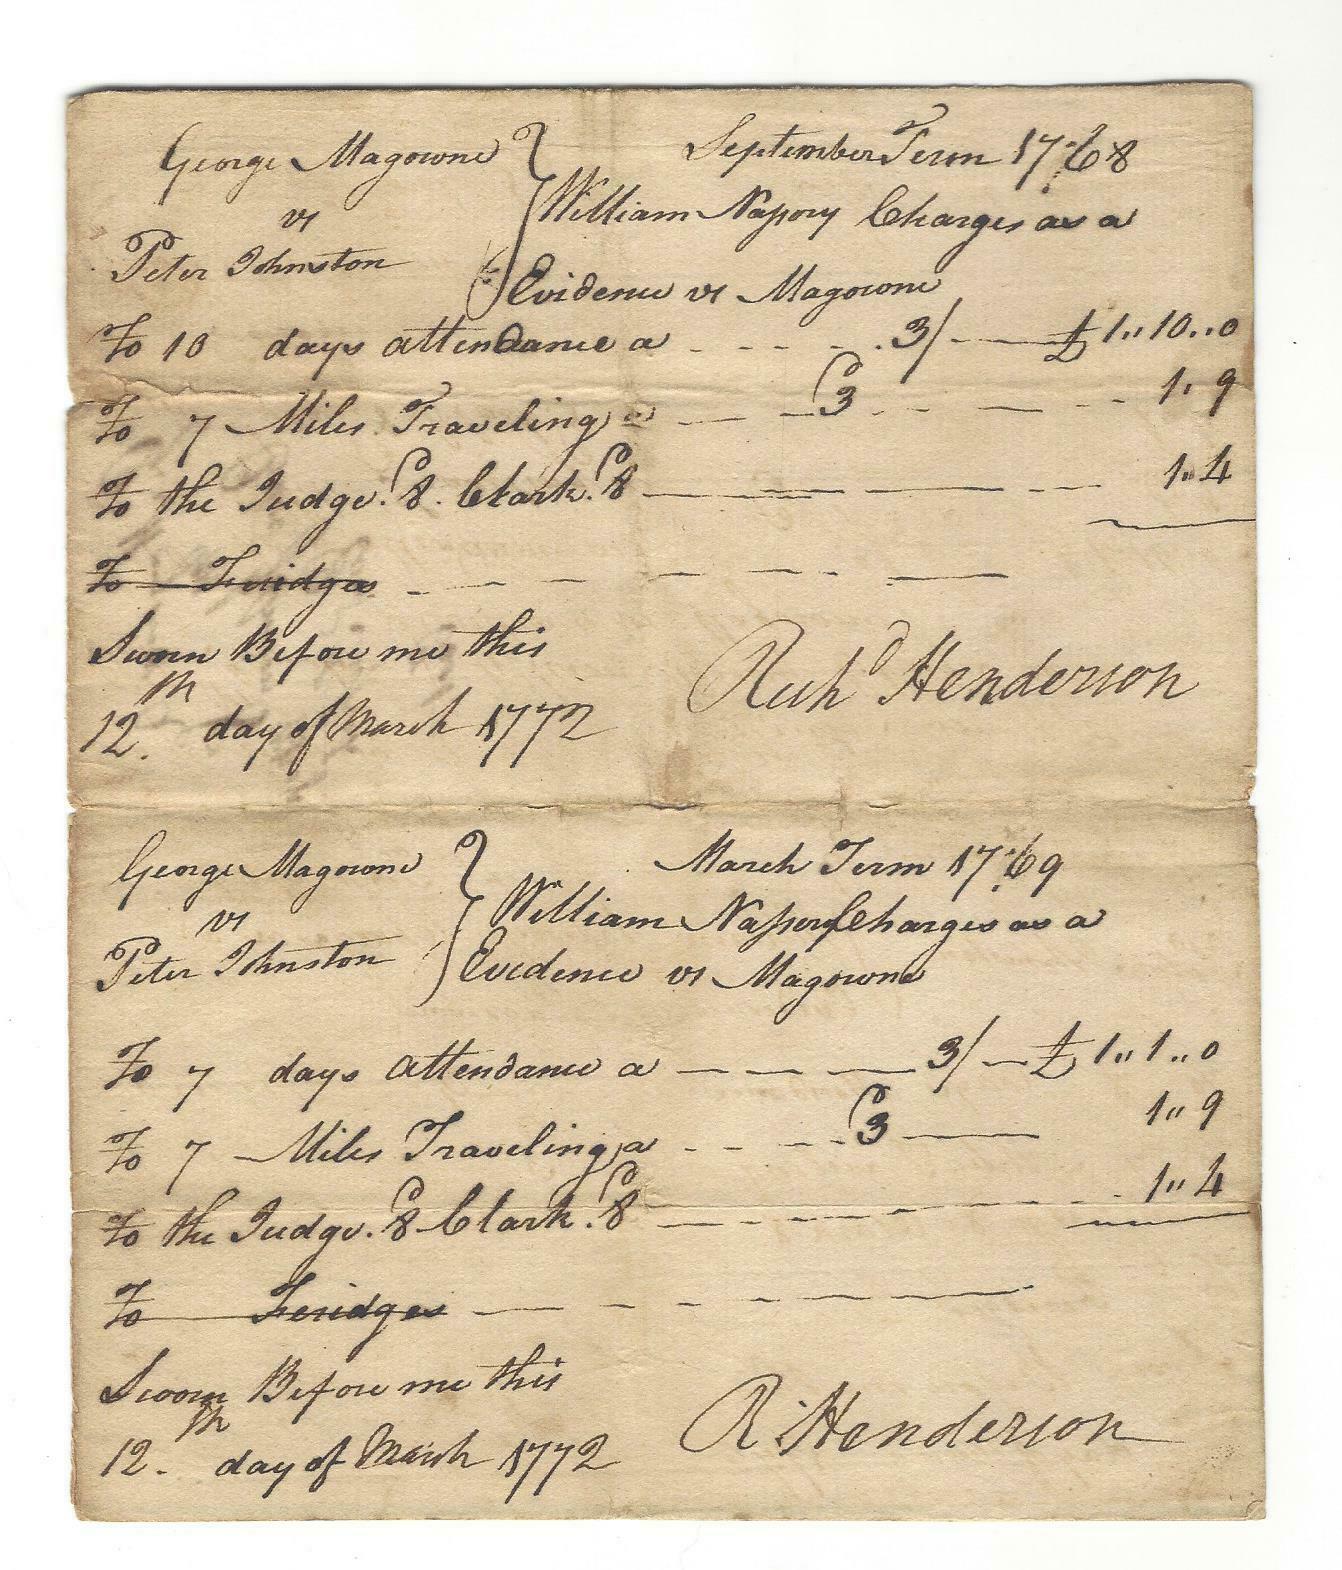 George Magowne
vs
Peter Johnston
September Term 1768
William Nassory Charges as a
Evidence vs Magowne
To 10 days attendance a 3/ £1..10..0
To 7 Miles Traveling a 3 1..9
To the Judge. 8. Clark. 8 1..4
To Feridges
Sworn Before me this
12.th day of March 1772
Richd Henderson
George Magowne
vs
Peter Johnston
March Term 1769
William Charges as a
Evidence vs Magowne
To 7 days attendance a 3/ £1..1..0
To 7 Miles Traveling a 3 1..9
To the Judge. 8 Clark. 8 1..4
To Feridges
Sworn Before me this
12.th day of March 1772
R. Henderson